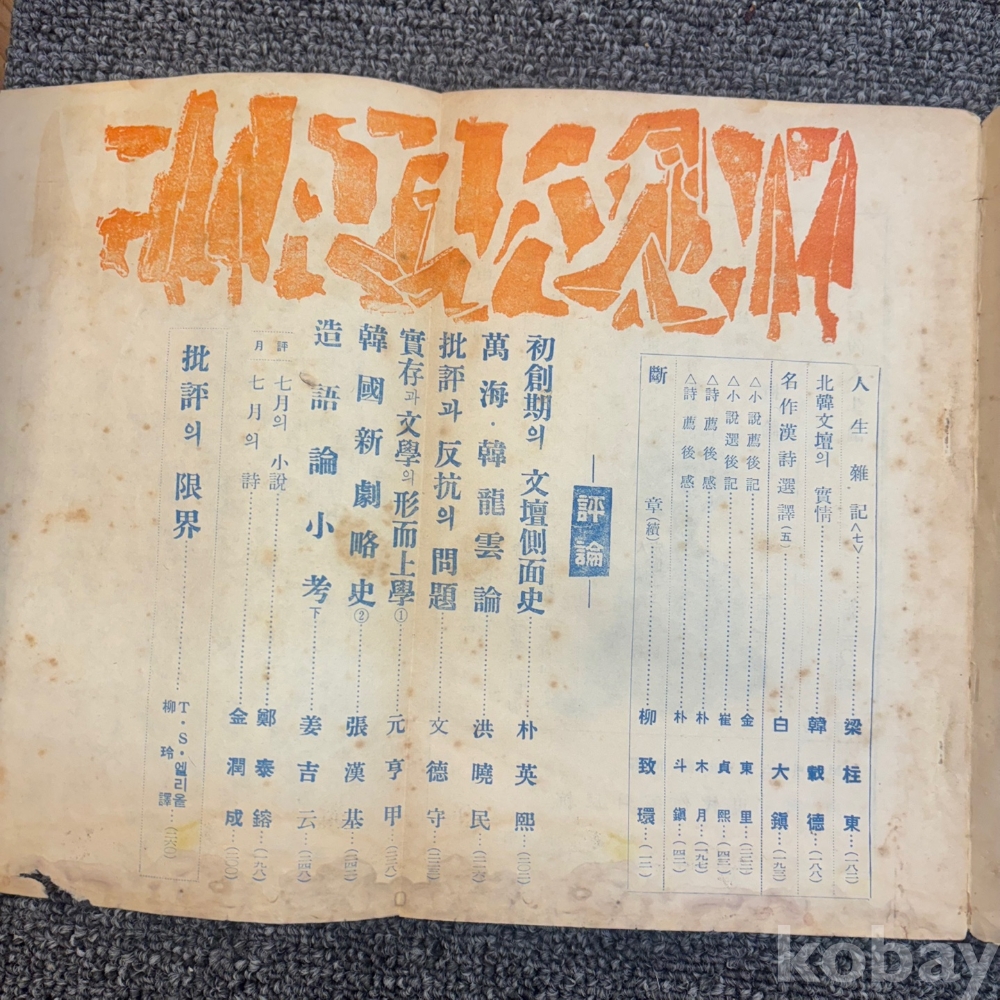 人生雜記<七>……梁柱東…(一八二)
北韓文壇의 實情……韓載德…(一八八)
名作漢詩選譯(五)……白大鎭…(一九三)
△小說薦後記……金東里
△小說選後記……崔貞熙
△詩薦後感……朴木月…(一九七)
△詩薦後感……朴斗鎭
斷章(續)……柳致環
評論
初創期의 文壇側面史……朴英熙
萬海·韓龍雲論……洪曉民
批評과 反抗의 問題……文德守
實存과 文學의 形而上學①……元亨甲
韓國新劇略史②……張漢基
造語論小考下……姜吉云
月評
七月의 小說……鄭泰鎔…(一九八)
七月의 詩……金潤成
批評의 限界……T·S·엘리올
柳玲 譯
kobay